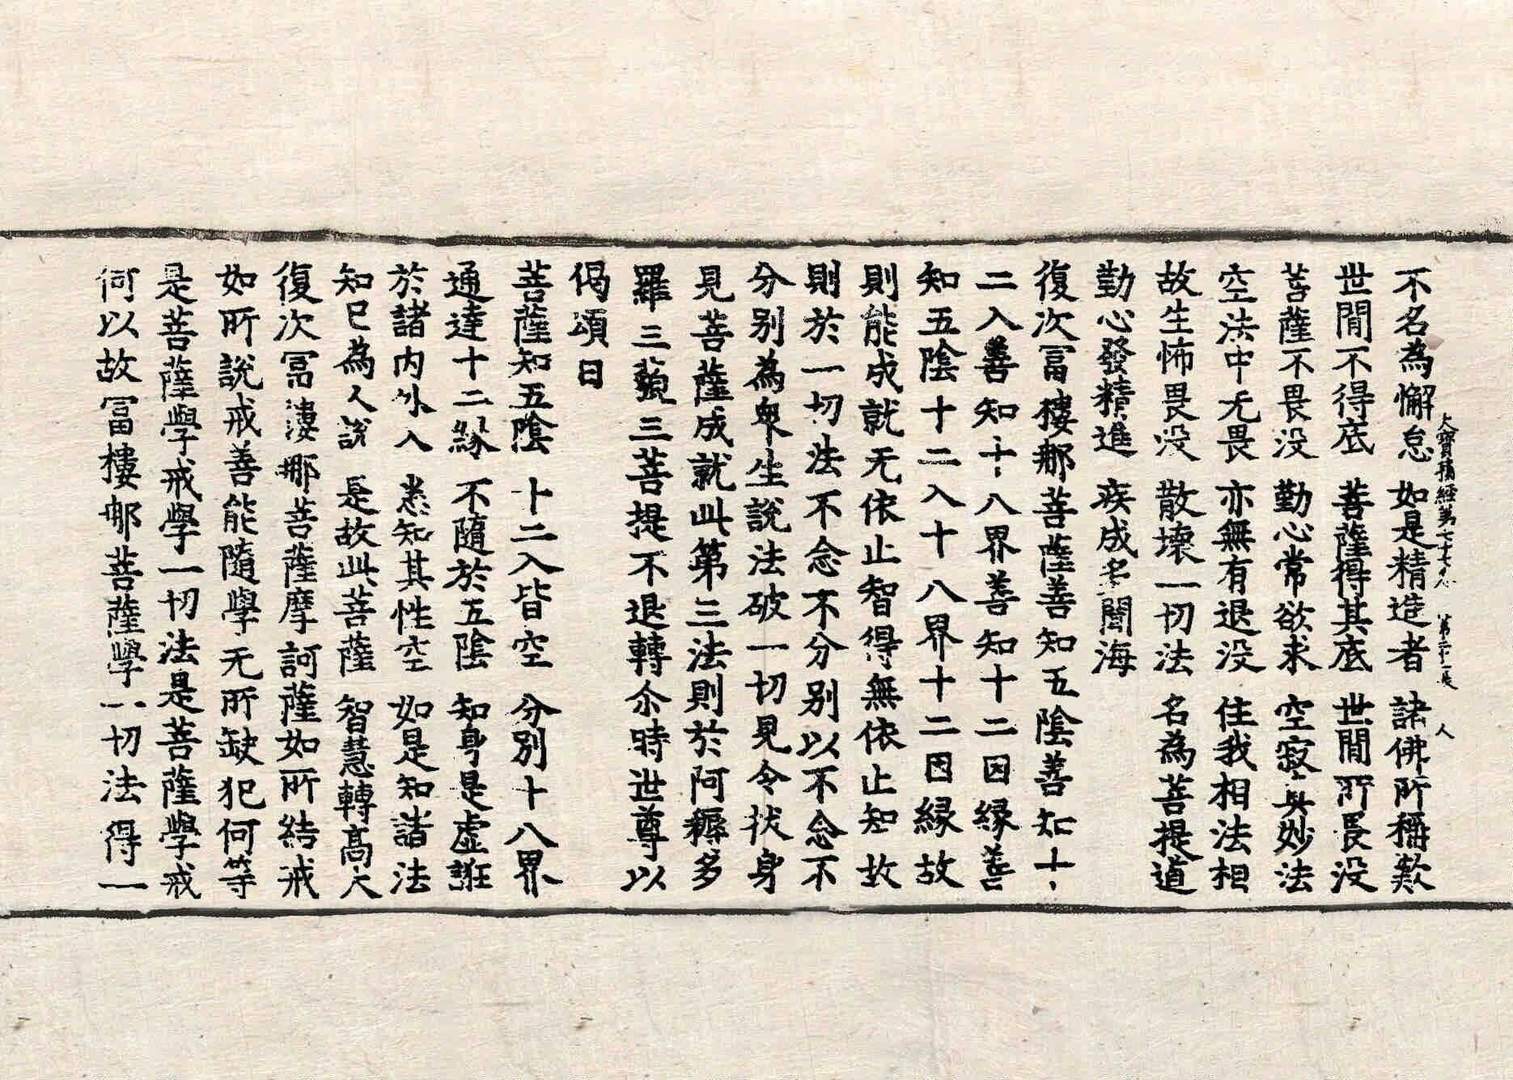 大寶積經第七十七卷 第二十一張 人
不名為懈怠 如是精進者 諸佛所稱歎
世間不得底 菩薩得其底 世間所畏沒
菩薩不畏沒 勤心常欲求 空寂真妙法
空法中无畏 亦無有退沒 住我相法相
故生怖畏没 散壞一切法 名為菩提道
勤心發精進 疾成多聞海
復次冨樓那菩薩善知五陰善知十
二入善知十八界善知十二因緣善
知五陰十二入十八界十二因緣故
則能成就无依止智得無依止知故
則於一切法不念不分别以不念不
分别為衆生說法破一切見令扶身
見菩薩成就此第三法則於阿耨多
羅三藐三菩提不退轉尒時世尊以
偈頌曰
菩薩知五隂 十二入皆空 分别十八界
通達十二緣 不隨於五陰 知身是虛誑
於諸内外入 悉知其性空 如是知諸法
知已為人說 是故此菩薩 智慧轉高大
復次冨樓那菩薩摩訶薩如所結戒
如所說戒善能隨學无所缺犯何等
是菩薩學戒學一切法是菩薩學戒
何以故冨樓那菩薩學一切法得一